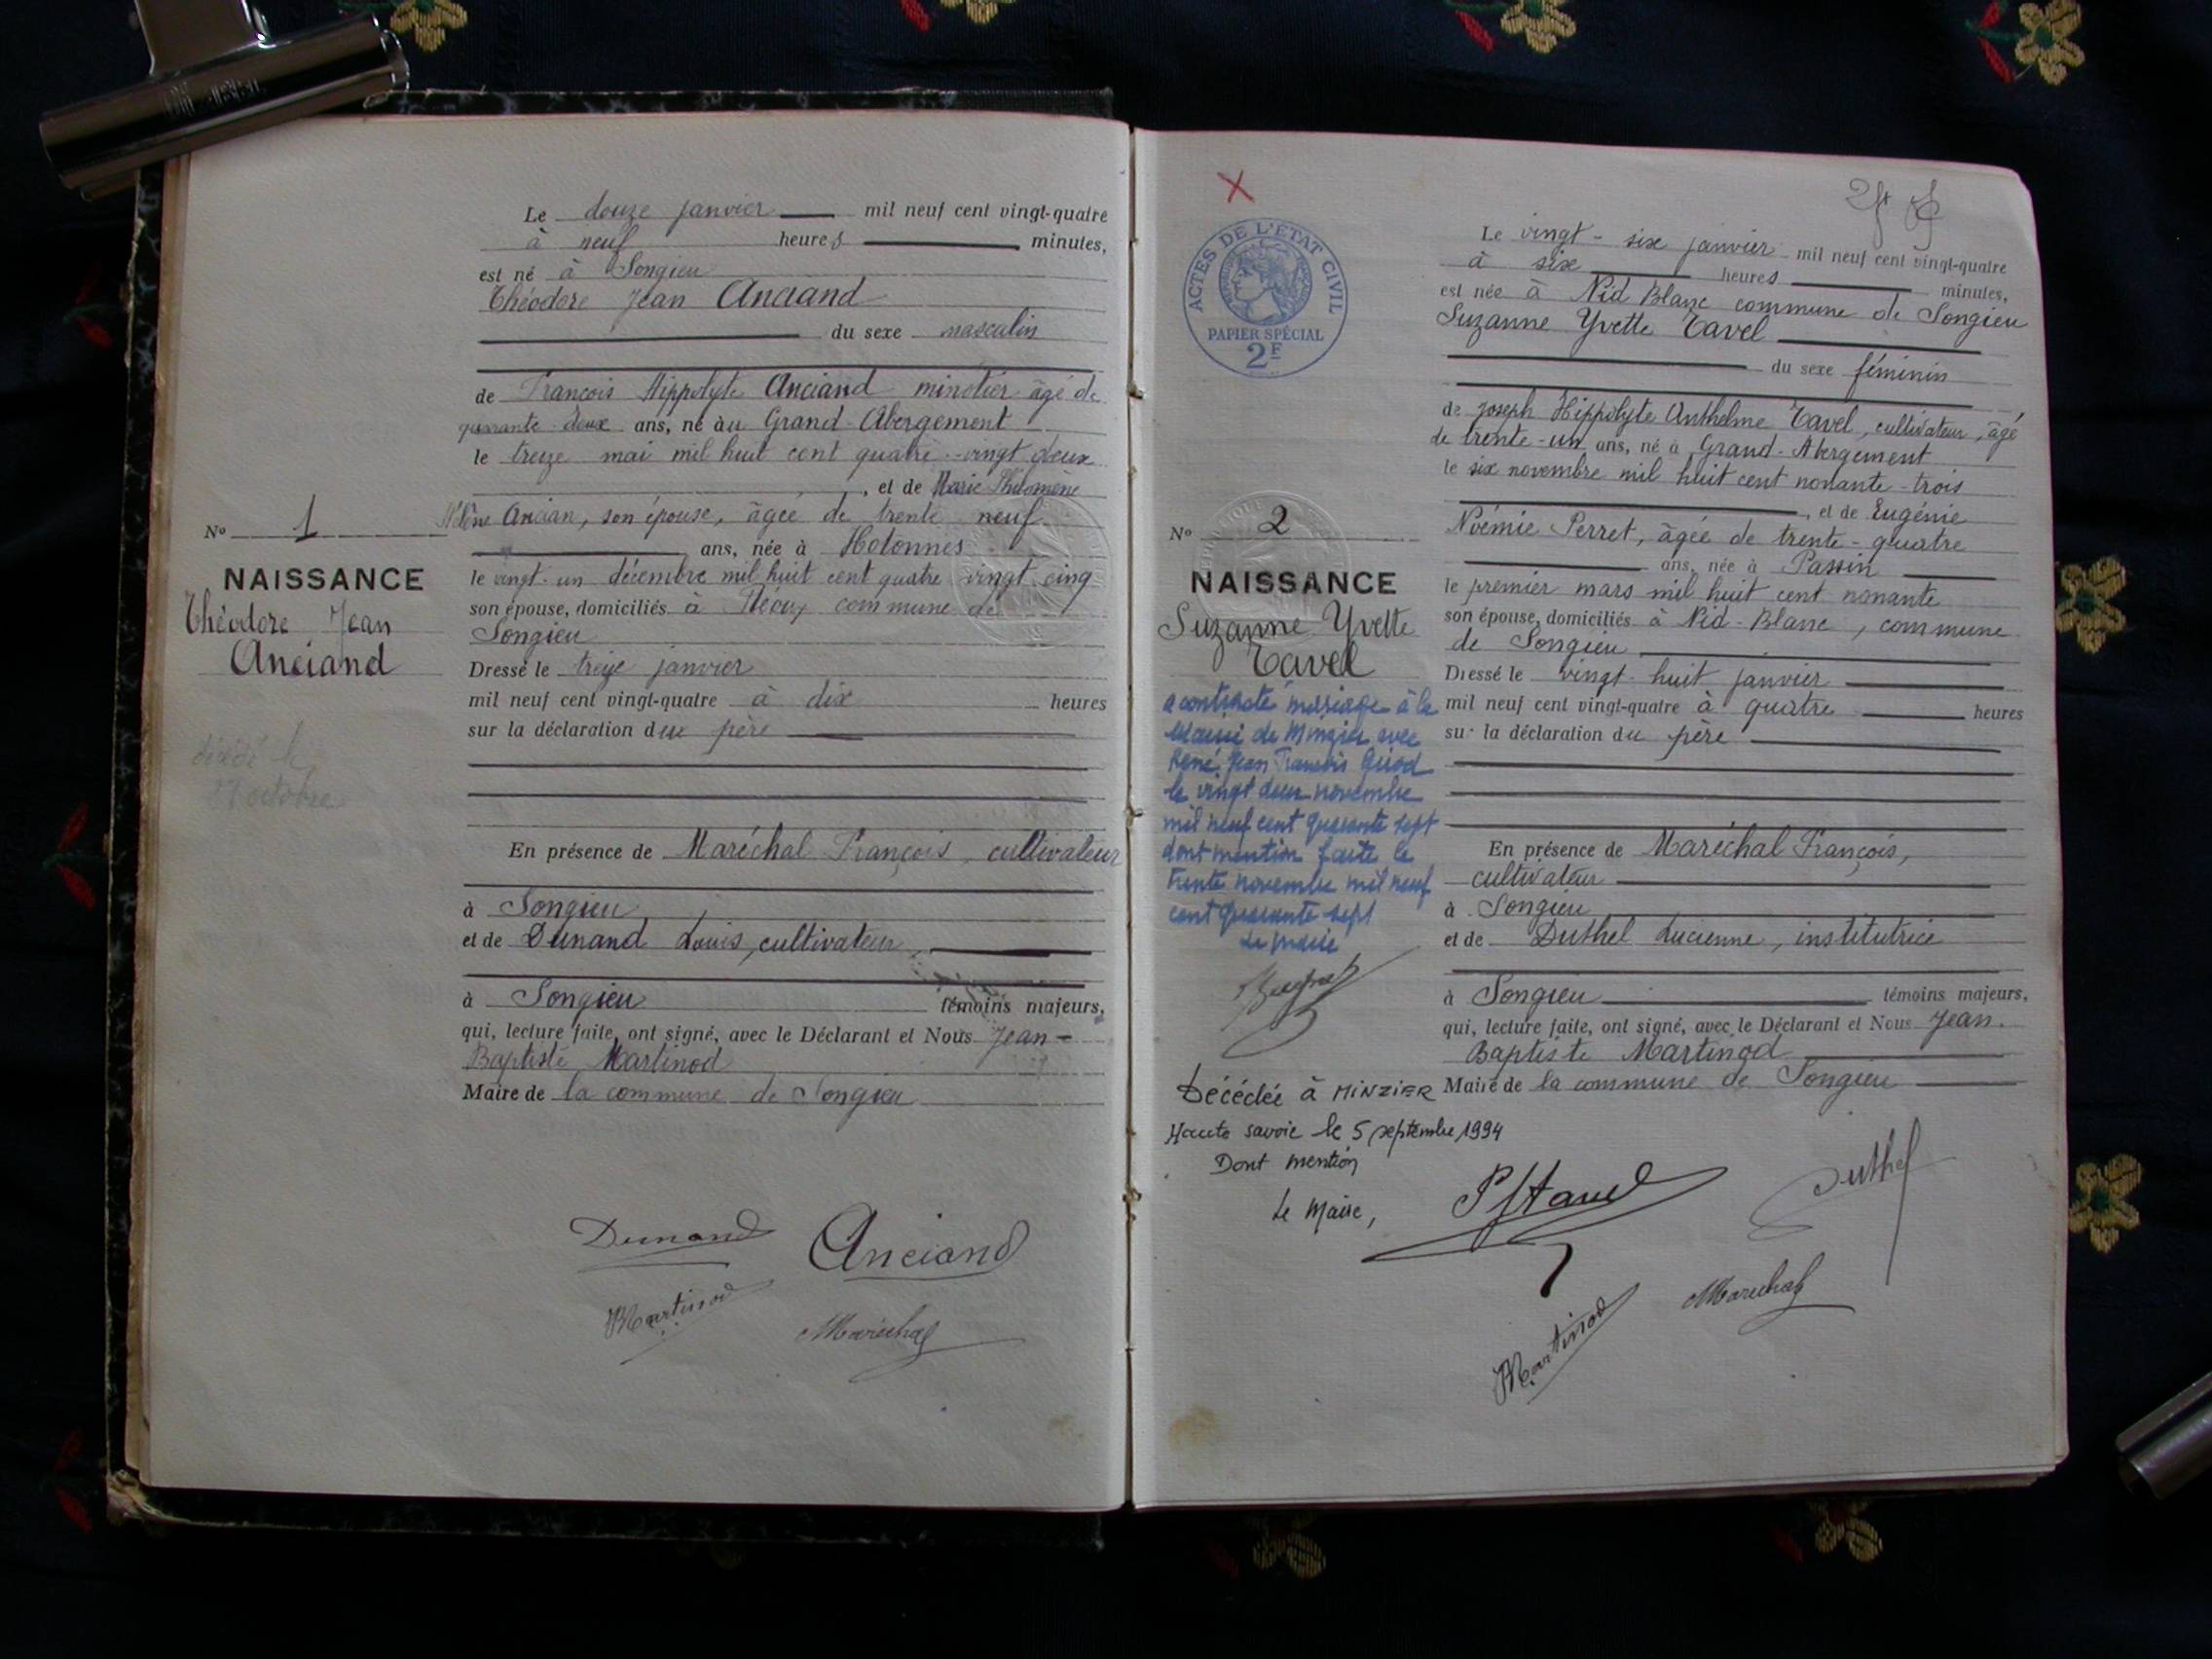 Le douze janvier mil neuf cent vingt-quatre
à neuf heures minutes,
est né à Songieu
Théodore Jean Anciand
du sexe masculin
de François Hippolyte Anciand minotier âgé de
quarante deux ans, né au Grand-Abergement
le treize mai mil huit cent quatre-vingt deux
, et de Marie Philomène
Ancian, son épouse, âgée de trente neuf
ans, née à Hotonnes
le vingt-un décembre mil huit cent quatre vingt cinq
son épouse, domiciliés à commune de
Songieu
Dressé le treize janvier
mil neuf cent vingt-quatre à dix heures
sur la déclaration du père
En présence de Maréchal François, cultivateur
à Songieu
et de Dunand Louis, cultivateur,
à Songieu témoins majeurs,
qui, lecture faite, ont signé, avec le Déclarant et Nous Jean-
Baptiste Martinod
Maire de la commune de Songieu
No 1
NAISSANCE
Théodore Jean
Anciand
27 octobre
Dunand
Anciand
Martinod
Maréchal
ACTES DE L'ÉTAT CIVIL
PAPIER SPÉCIAL
2F
Le vingt-six janvier mil neuf cent vingt-quatre
à six heures minutes,
est née à Nid Blanc commune de Songieu
Suzanne Yvette Tavel
du sexe féminin
de Joseph Hippolyte Anthelme Tavel, cultivateur, âgé
de trente-un ans, né à Grand-Abergement
le six novembre mil huit cent nonante-trois
, et de Eugénie
Noémie Perret, âgée de trente-quatre
ans, née à Passin
le premier mars mil huit cent nonante
son épouse, domiciliés à Nid-Blanc, commune
de Songieu
Dressé le vingt-huit janvier
mil neuf cent vingt-quatre à quatre heures
sur la déclaration du père
En présence de Maréchal François,
cultivateur
à Songieu
et de Duthel Lucienne, institutrice
à Songieu témoins majeurs,
qui, lecture faite, ont signé, avec le Déclarant et Nous Jean-
Baptiste Martinod
Maire de la commune de Songieu
No 2
NAISSANCE
Suzanne Yvette
Tavel
a contracté mariage à la
Mairie de Minzier avec
René Jean François
le vingt deux novembre
mil neuf cent quarante sept
dont mention faite le
trente novembre mil neuf
cent quarante sept
Le Maire
Décédée à MINZIER
Haute Savoie le 5 septembre 1994
Dont mention
Le Maire,
Duthel
Maréchal
Martinod